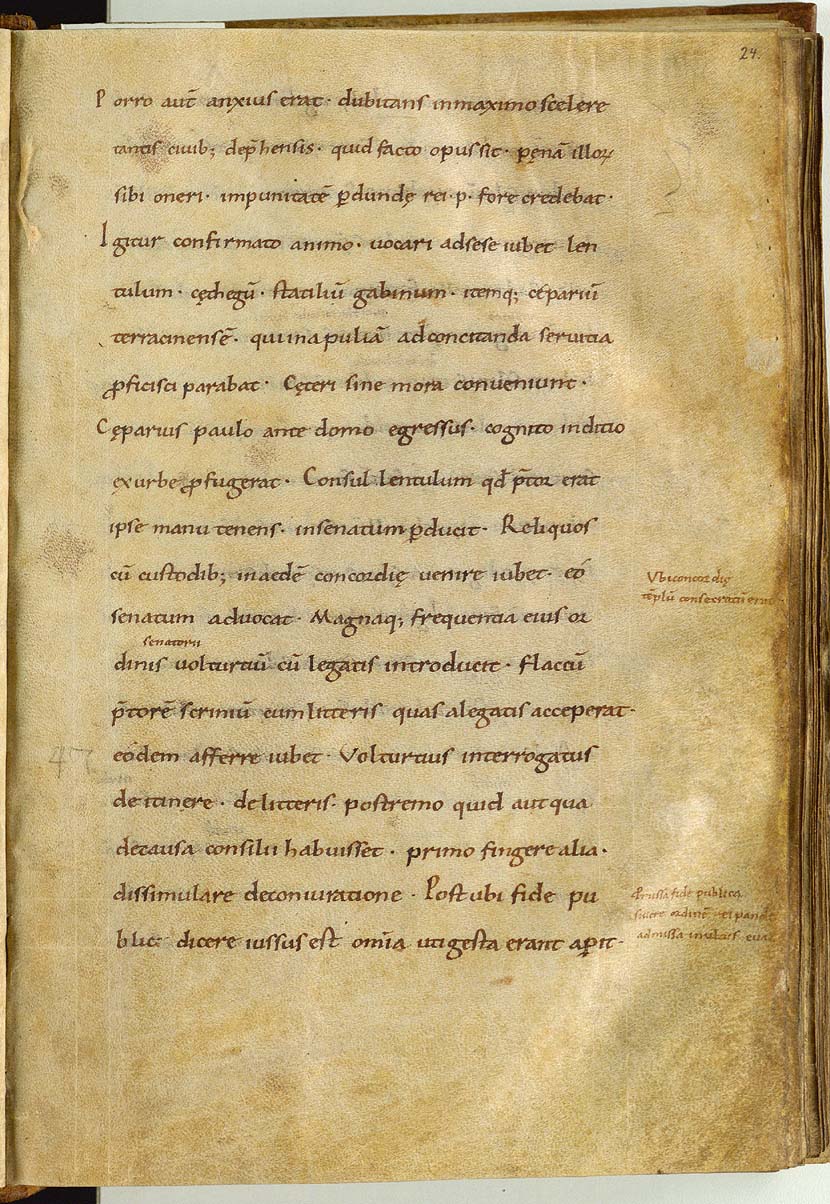 24.
Porro aut̄ anxius erat· dubitans inmaximo scelere
tantis ciuib; dep̄hensis· quid facto opus sit· pęnā illoꝝ
sibi oneri· impunitatē ꝑdundę rei·p· fore credebat·
Igitur confirmato animo· uocari adsese iubet len
tulum· cęthegū· statiliū gabinum· itemq; cepariū
terracinensē· qui inapuliā adconcitanda seruitia
ꝓficisci parabat· Cęteri sine mora conueniunt·
Cęparius paulo ante domo egressus· cognito inditio
exurbe ꝓfugerat· Consul lentulum qđ p̄tor erat
ipse manu tenens· insenatum ꝑducit· Reliquos
cū custodib; inaedē concordię uenire iubet· eo
senatum aduocat· Magnaq; frequentia eius or
senatorii
dinis uolturtiū cū legatis introducit· flaccū
p̄torē scriniū cumlitteris quas alegatis acceperat·
eodem afferre iubet· Volturtius interrogatus
de itinere· delitteris· postremo quid aut qua
decausa consilii habuisset· primo fingere alia·
dissimulare deconiuratione· Post ubi fide pu
blica dicere iussus est omīa uti gesta erant aꝑit·
Vbi concordię
tēplū consecratū erat
fide publica